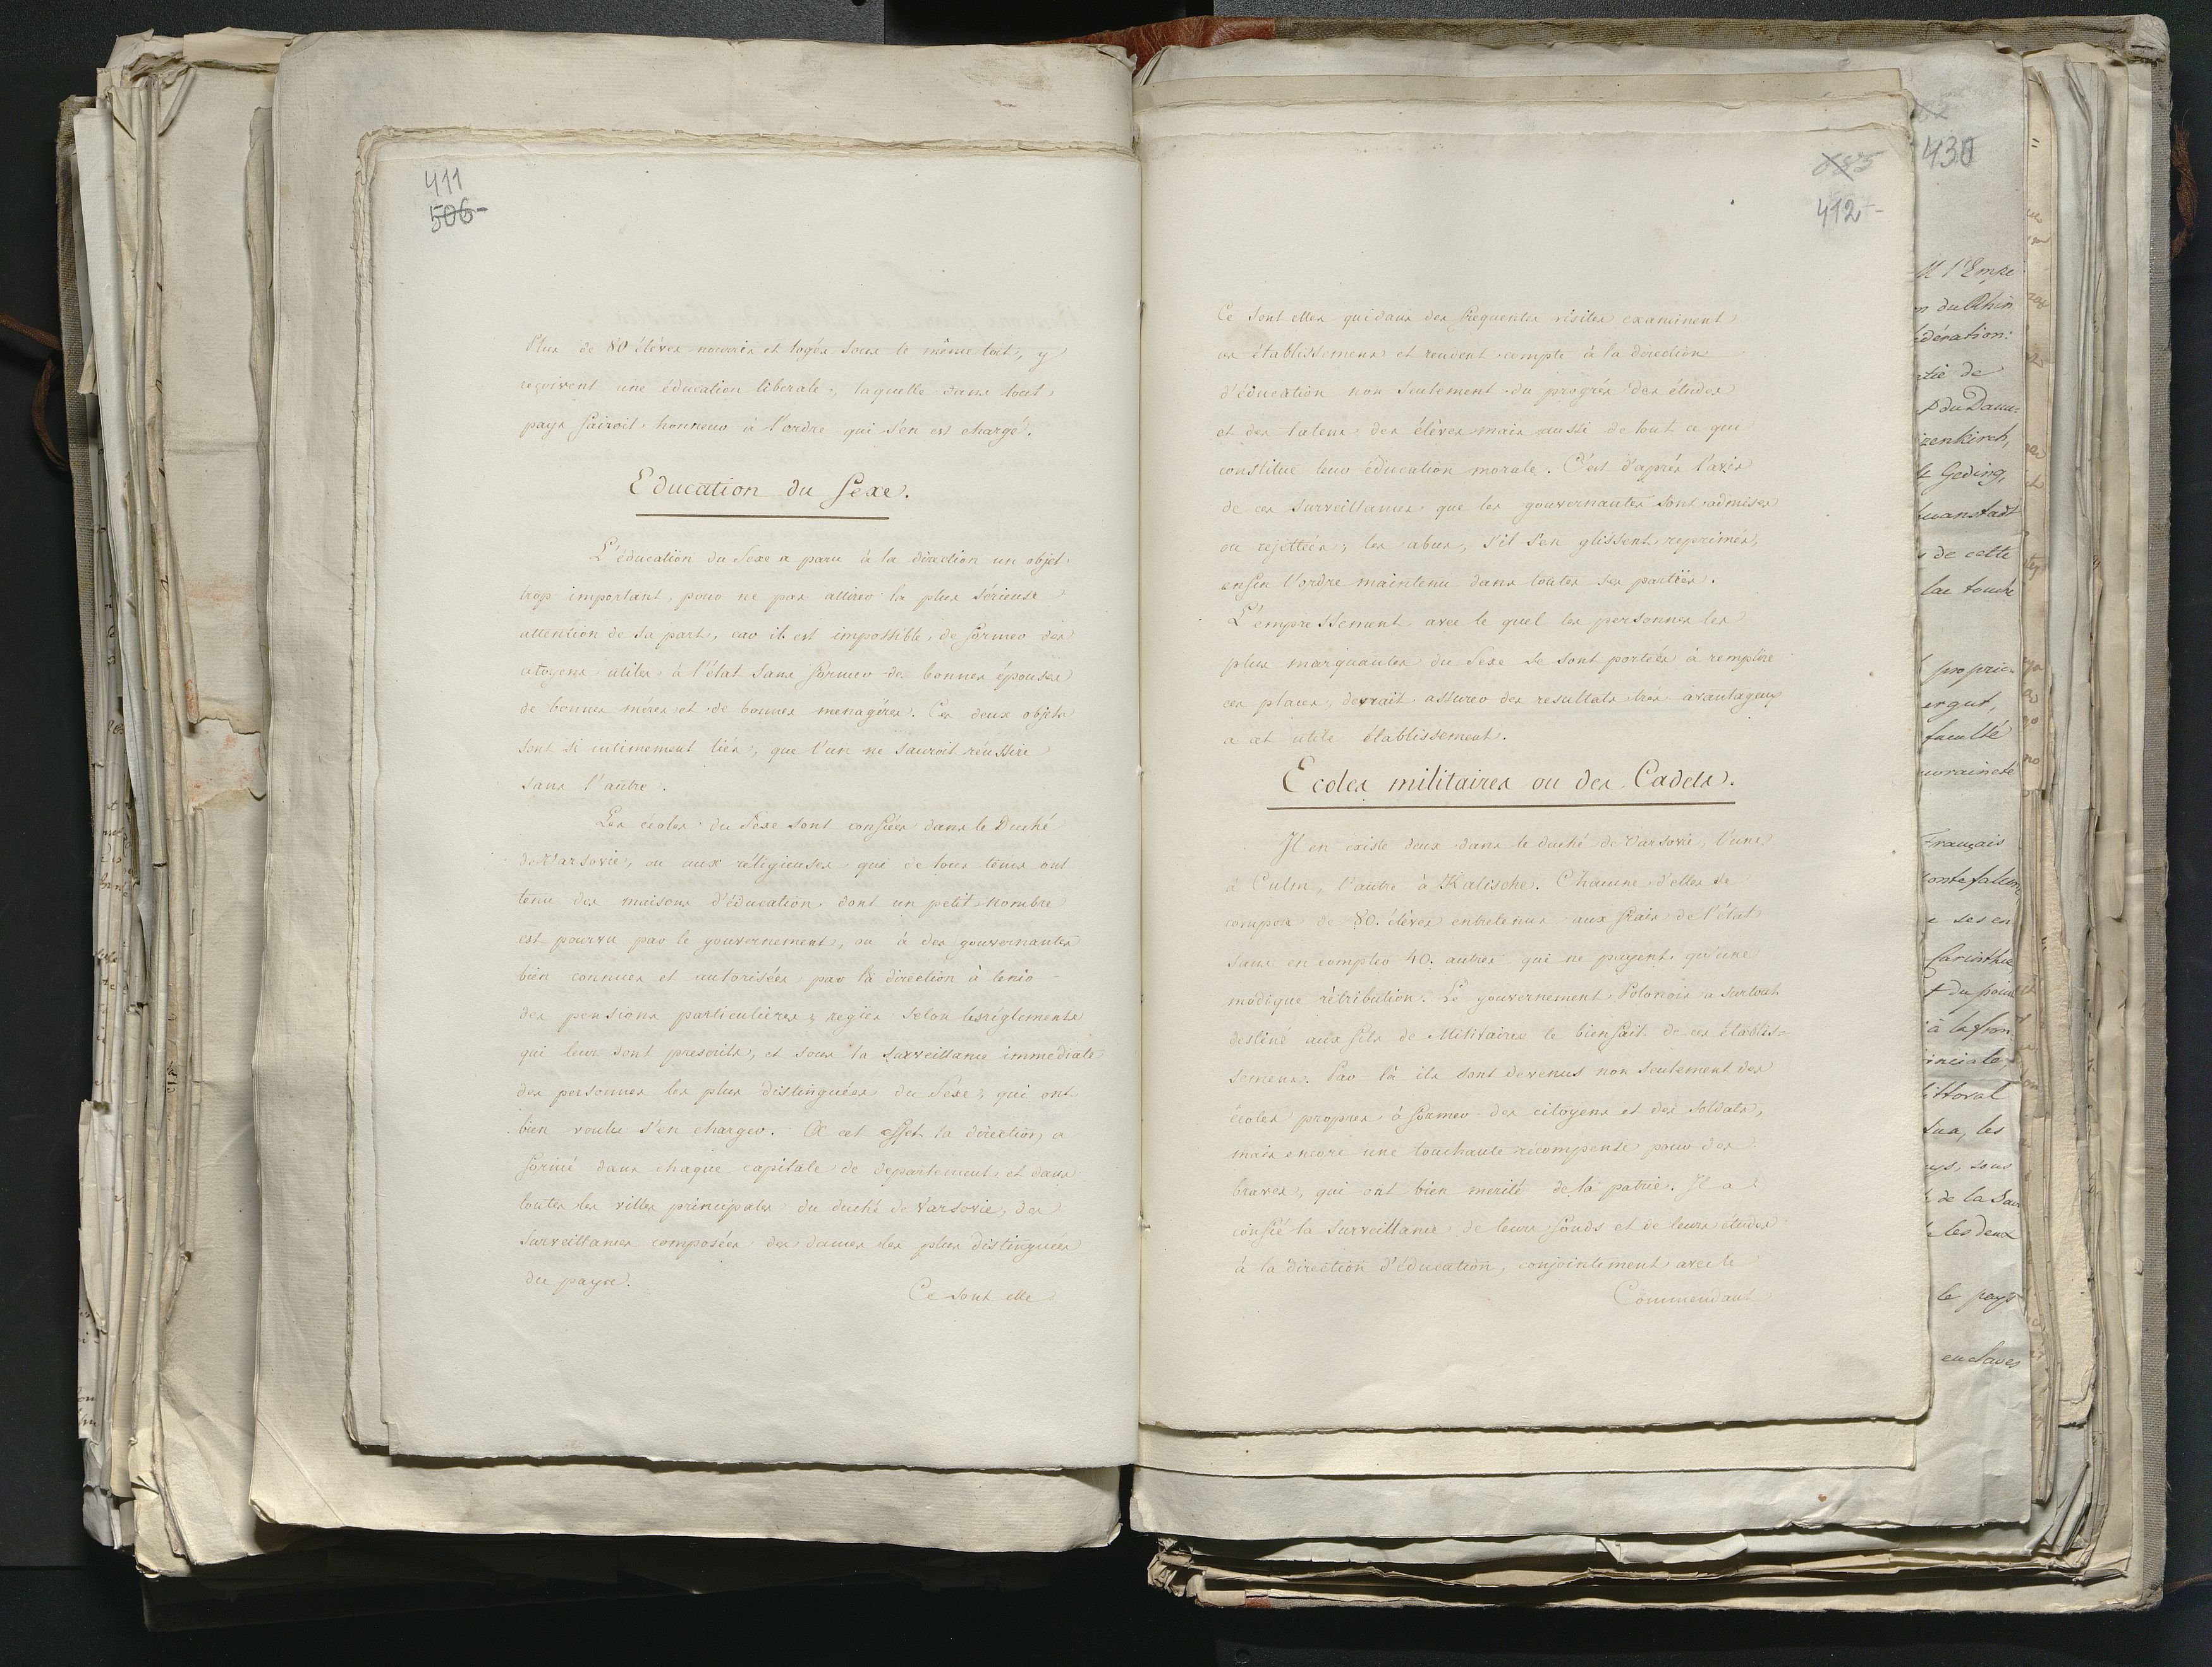 411
506-
Plus de 80 élèves nourris et logés sous le même toit, y
reçoivent une éducation liberale, laquelle dans tout
pays fairoit honneur à l'ordre qui s'en est chargé.
Education du Sexe.
L'éducation du Sexe a paru à la direction un objet
trop important, pour ne pas attirer la plus sérieuse
attention de sa part, car il est impossible, de former des
citoyens utiles à l'état sans former de bonnes épouses
de bonnes mères et de bonnes menagères. Ces deux objets
sont si intimement liés, que l'un ne sauroit réussire
sans l'autre.
Les écoles du Sexe sont confiées dans le Duché
de Varsovie, ou aux réligieuses qui de tous tems ont
tenu des maisons d'éducation dont un petit nombre
est pourvu par le gouvernement, ou à des gouvernantes
bien connues et autorisées par la direction à tenir
des pensions particulières, regies selon les réglements
qui leur sont prescrits, et sous la surveillance immediate
des personnes les plus distinguées du Sexe, qui ont
bien voulu s'en charger. A cet effet la direction a
formé dans chaque capitale de departement et dans
toutes les villes principales du duché de Varsovie, des
surveillances composées des dames les plus distinguées
du pays.
Ce sont elle
412-
Ce sont elles qui dans des frequentes visites examinent
ces établissemens et rendent compte à la direction
d'éducation non seulement du progrès des études
et des talens des élèves mais aussi de tout ce que
constitue leur éducation morale. C'est d'après l'avis
de ces surveillances que les gouvernantes sont admises
ou rejettées; les abus, s'il s'en glissent, reprimés,
enfin l'ordre maintenu dans toutes ses parties.
L'empressement avec le quel les personnes les
plus marquantes du Sexe se sont portées à remplire
ces places, devrait assurer des resultats très avantageux
a cet utile établissement.
Ecoles militaires ou des Cadets.
Il en existe deux dans le duché de Varsovie, l'une
à Culm, l'autre à Kalische. Chacune d'elles se
compose de 80. élèves entretenus aux frais de l'état
sans en compter 40. autres qui ne payent qu'une
modique rétribution. Le gouvernement Polonois a surtout
destiné aux fils de Militaires le bienfait de ces établis=
semens. Par là ils sont devenus non seulement des
écoles propres à former des citoyens et des soldats,
mais encore une touchante récompense pour des
braves, qui ont bien merité de la patrie. Il a
confié la surveillance de leurs fonds et de leurs études
à la direction d'éducation, conjointement avec le
Commendant
430
M l'Empe
du Rhin
édération:
tie de
P du Danu=
zenkirch,
Geding,
wanstadt
de cette
lac touche
proprie
ergut,
faculté
uveraineté
Français
onte falcone
ses en
Carinthie
du point
à la fron
inciale,
littoral
les
sous
de la Sau
les deux
le pays
enclaves